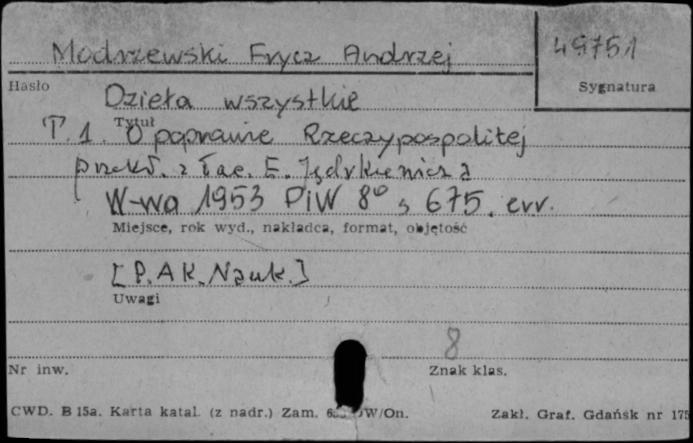 Modrzewski Frycz Andrzej
49751
Hasło
Sygnatura
Dzieła wszystkie
Tytuł
T. 1. O poprawie Rzeczypospolitej
przekł. z łac. E. Jędrkiewicza
W-wa 1953 PiW 8° s 675. err.
Miejsce, rok wyd., nakładca, format, objętość
[P. AK. Nauk.]
Uwagi
8
Nr inw.
Znak klas.
CWD. B 15a. Karta katal. (z nadr.) Zam. W/On.
Zakł. Graf. Gdańsk nr 175